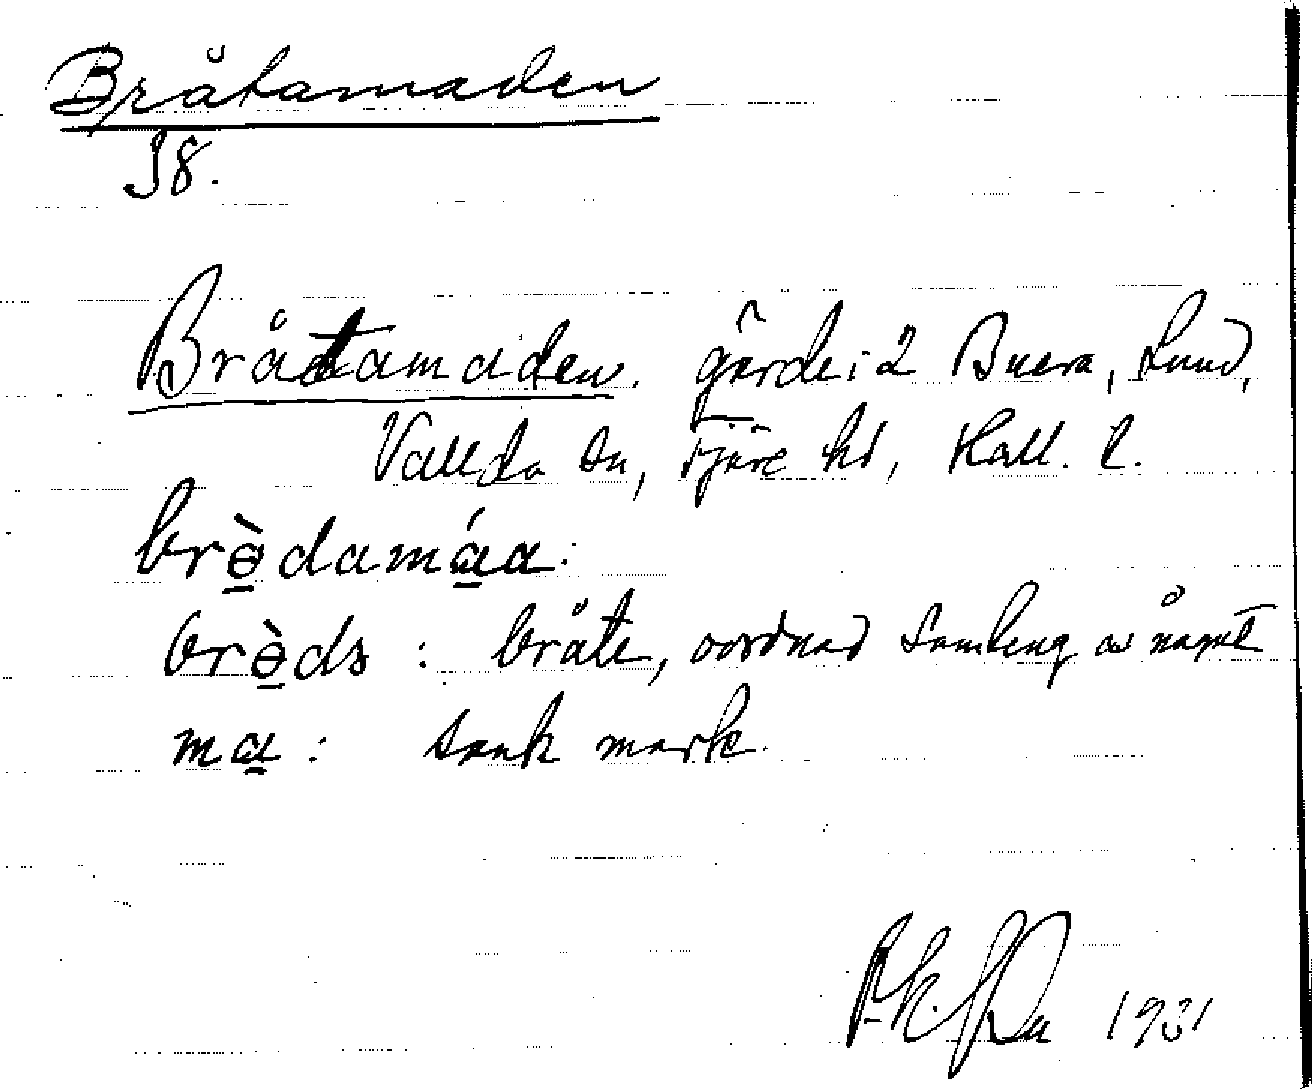 Bråtamaden
38.
Bråtamaden. gärde i 2 Buera, Lund,
Vallda sn, Fjäre hd, Hall. l.
brɵ̀damáa.
brɵ̀ds : bråte, oordnad samling av något
ma : sank mark.
1931